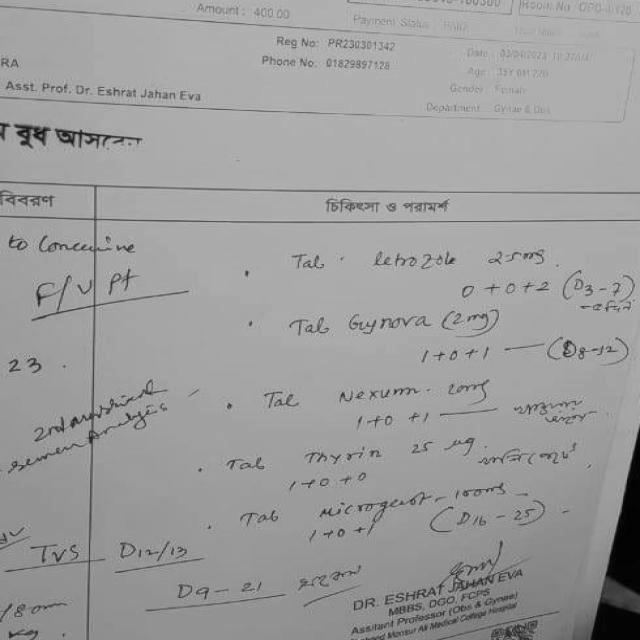 Amount : 400.00
Payment Status : PAID
Room No : OPD-
Reg No: PR230301342
Phone No: 01829897128
Date : 03/04/2023
Gender : Female
Department : Gynae & Obs
RA
Asst. Prof. Dr. Eshrat Jahan Eva
বুধ
বিবরণ
চিকিৎসা ও পরামর্শ
to Conceive
F/U Pt
• Tab. Letrozole 2.5mg
0 + 0 + 2 (D3 - 7)
• Tab Gynova (2mg)
1 + 0 + 1 — (D8-12)
23 .
• Tab Nexum. 20mg
1 + 0 + 1
Semen Analysis
• Tab Thyrin 25 µg
1 + 0 + 0
• Tab Microgest - 100mg
1 + 0 + 1 (D16 - 25)
TVS D12/13
D9 - 21
DR. ESHRAT JAHAN EVA
MBBS, DGO, FCPS
Assitant Professor (Obs & Gynae)
Monsur Ali Medical College Hospital
kg